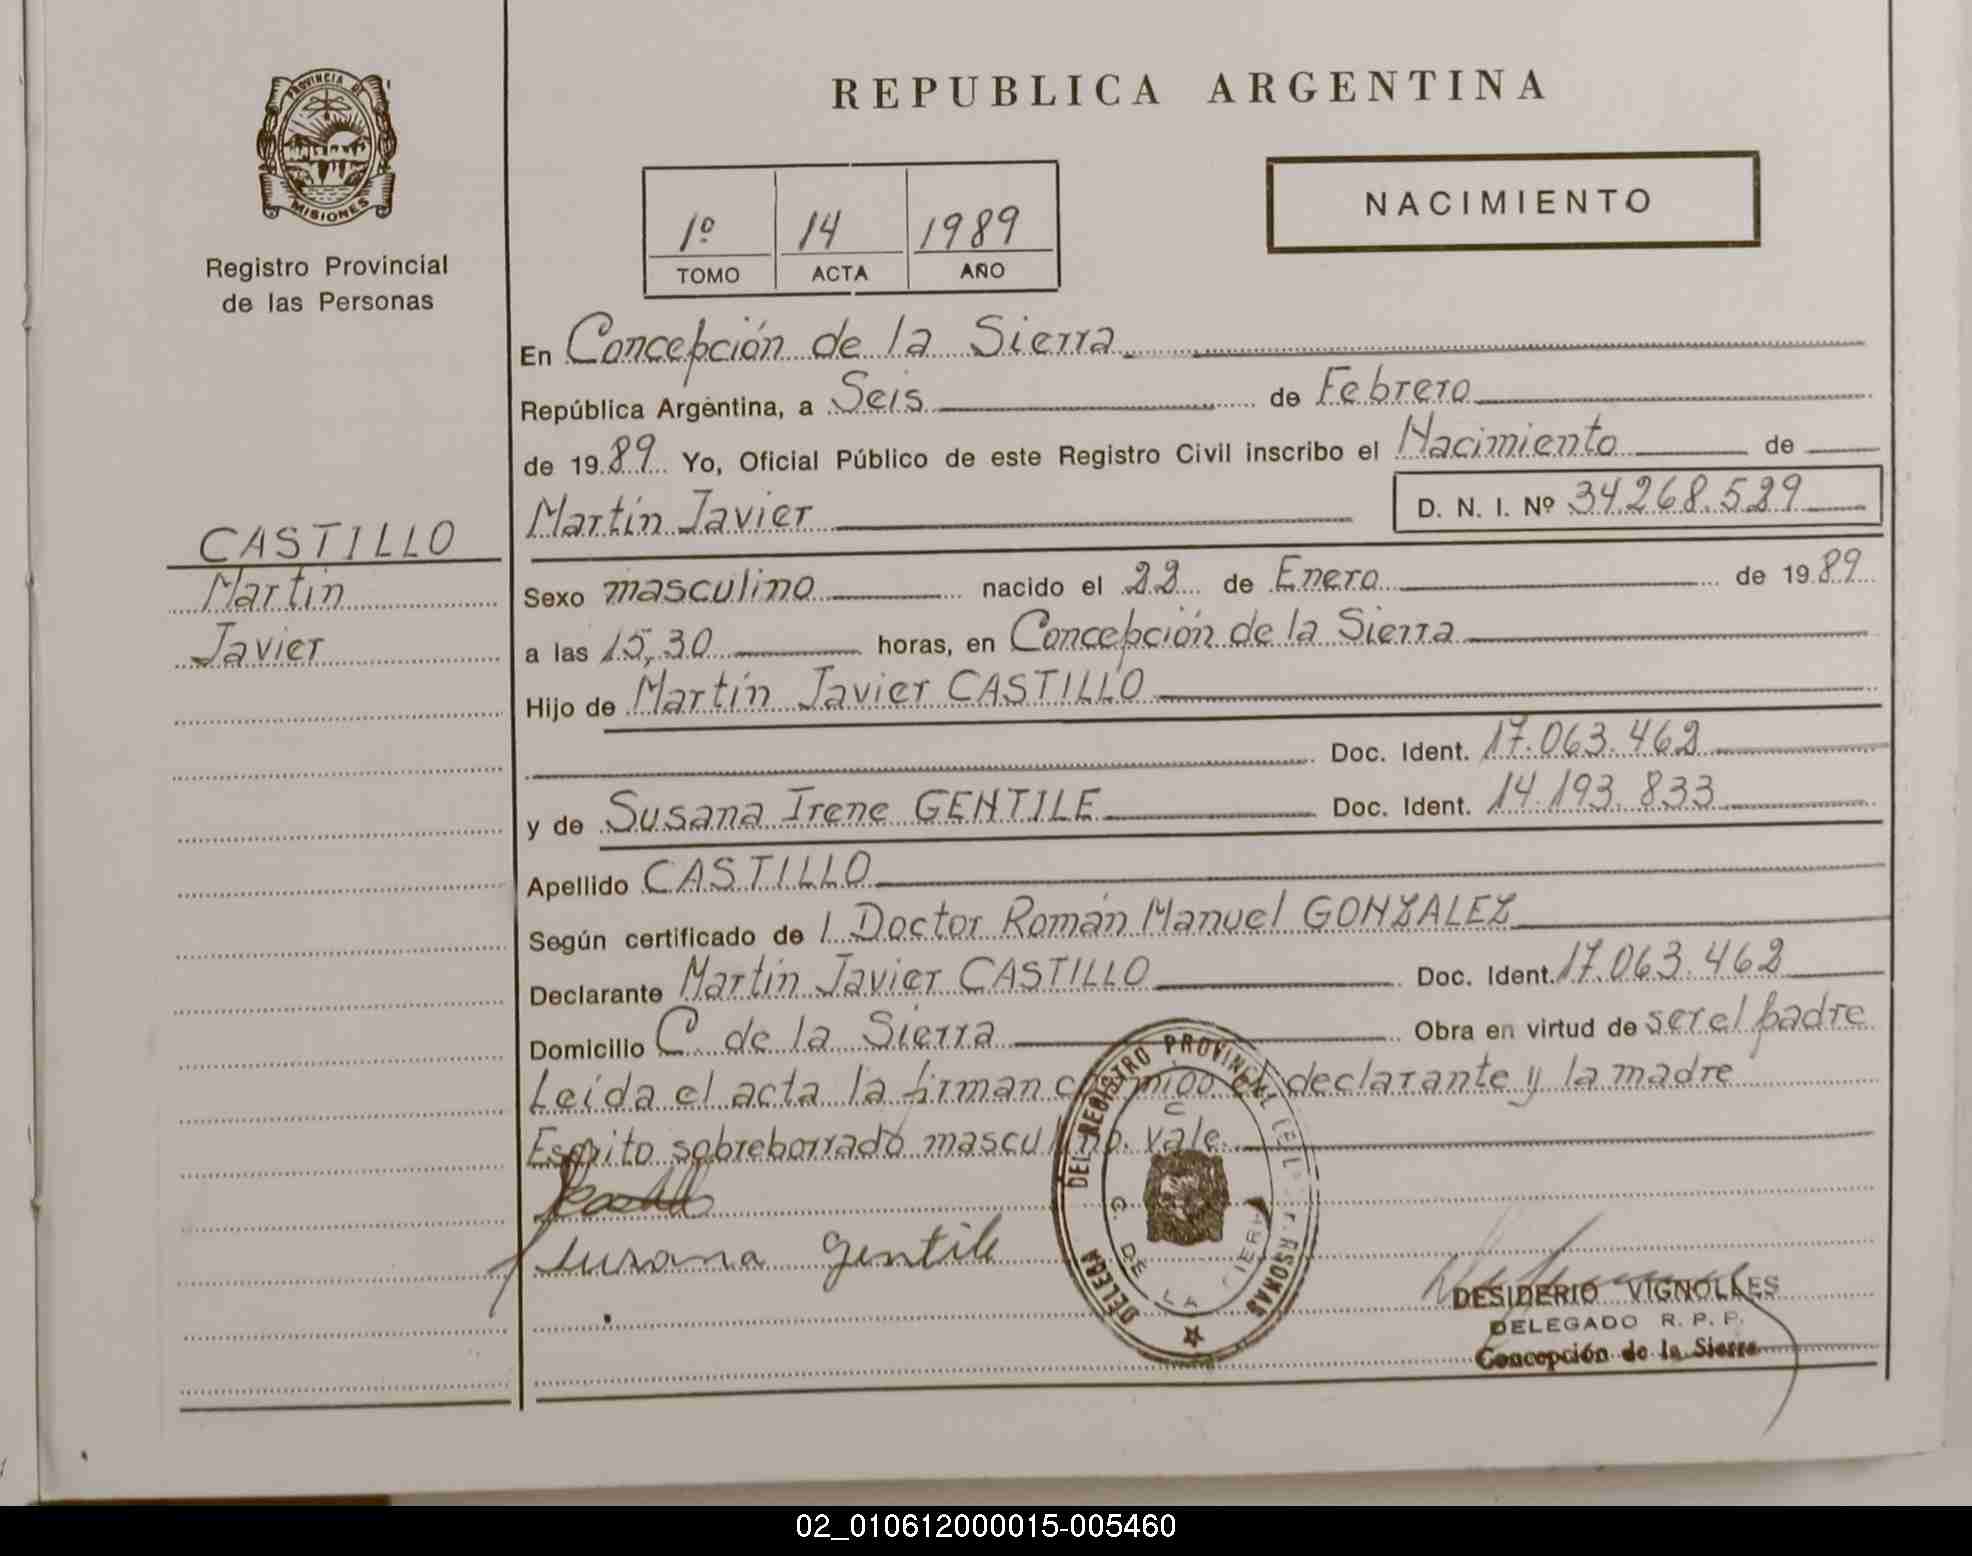 PROVINCIA DE
MISIONES
Registro Provincial
de las Personas
REPUBLICA ARGENTINA
1º 14 1989
TOMO ACTA AÑO
NACIMIENTO
En Concepción de la Sierra
República Argentina, a Seis de Febrero
de 1989 Yo, Oficial Público de este Registro Civil inscribo el Nacimiento de
Martín Javier D. N. I. Nº 34.268.529
CASTILLO
Martín
Javier
Sexo masculino nacido el 22 de Enero de 1989
a las 15,30 horas, en Concepción de la Sierra
Hijo de Martín Javier CASTILLO
Doc. Ident. 17.063.462
y de Susana Irene GENTILE Doc. Ident. 14.193.833
Apellido CASTILLO
Según certificado de l Doctor Román Manuel GONZALEZ
Declarante Martín Javier CASTILLO Doc. Ident. 17.063.462
Domicilio C. de la Sierra Obra en virtud de ser el padre
Leída el acta la firman conmigo el declarante y la madre
Escrito sobreborrado masculino. vale.
Susana Gentile
DEL REGISTRO PROVINCIAL DE LAS PERSONAS
C. DE LA SIERRA
DESIDERIO VIGNOLLES
DELEGADO R. P. P.
Concepción de la Sierra
02_010612000015-005460